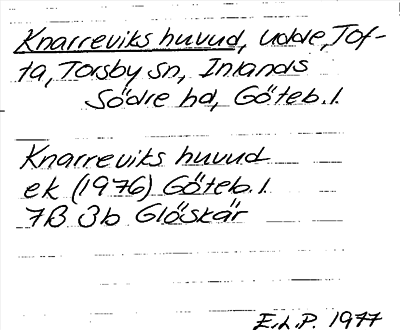 Knarreviks huvud, udde, Tof-
ta, Torsby sn, Inlands
Södre hd, Göteb. l.
Knarreviks huvud
ek (1976) Göteb. l.
7B 3b Glöskär
E.L.P. 1977